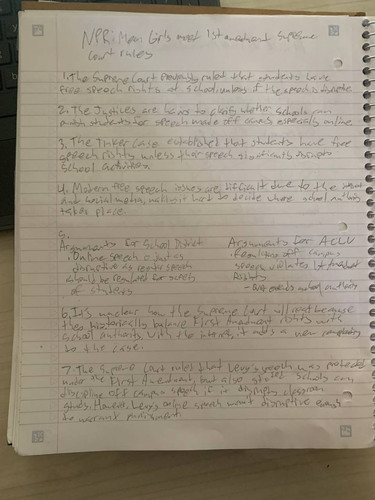 NPR: Mean Girls meet 1st amendment Supreme
court rules
1. The Supreme Court previously ruled that students have
free speech rights at school unless if the speech is disruptive
2. The Justices are having to clarify whether schools can
punish students for speech made off campus especially online
3. The Tinker case established that students have free
speech rights unless that speech significantly disrupts
School activities.
4. Modern speech issues are difficult due to the internet
and social media, making it hard to decide where school authority
takes place.
5.
Arguments for School District
Arguments for ACLU
• Online speech is just as
disruptive as regular speech
should be regulated for safety
of students
off campus
speech violates 1st Amendment
Rights
- school authority
6. It's unclear how the Supreme Court will because
they historically balance First Amendment rights with
school authority. With the internet, it adds a new complexity
to the case.
7. The Supreme Court ruled that Levy's speech was protected
under the First Amendment, but also stated schools can
discipline off campus speech if it disrupts classroom
study. However, Levy's online speech wasn't disruptive enough
to warrant punishment.